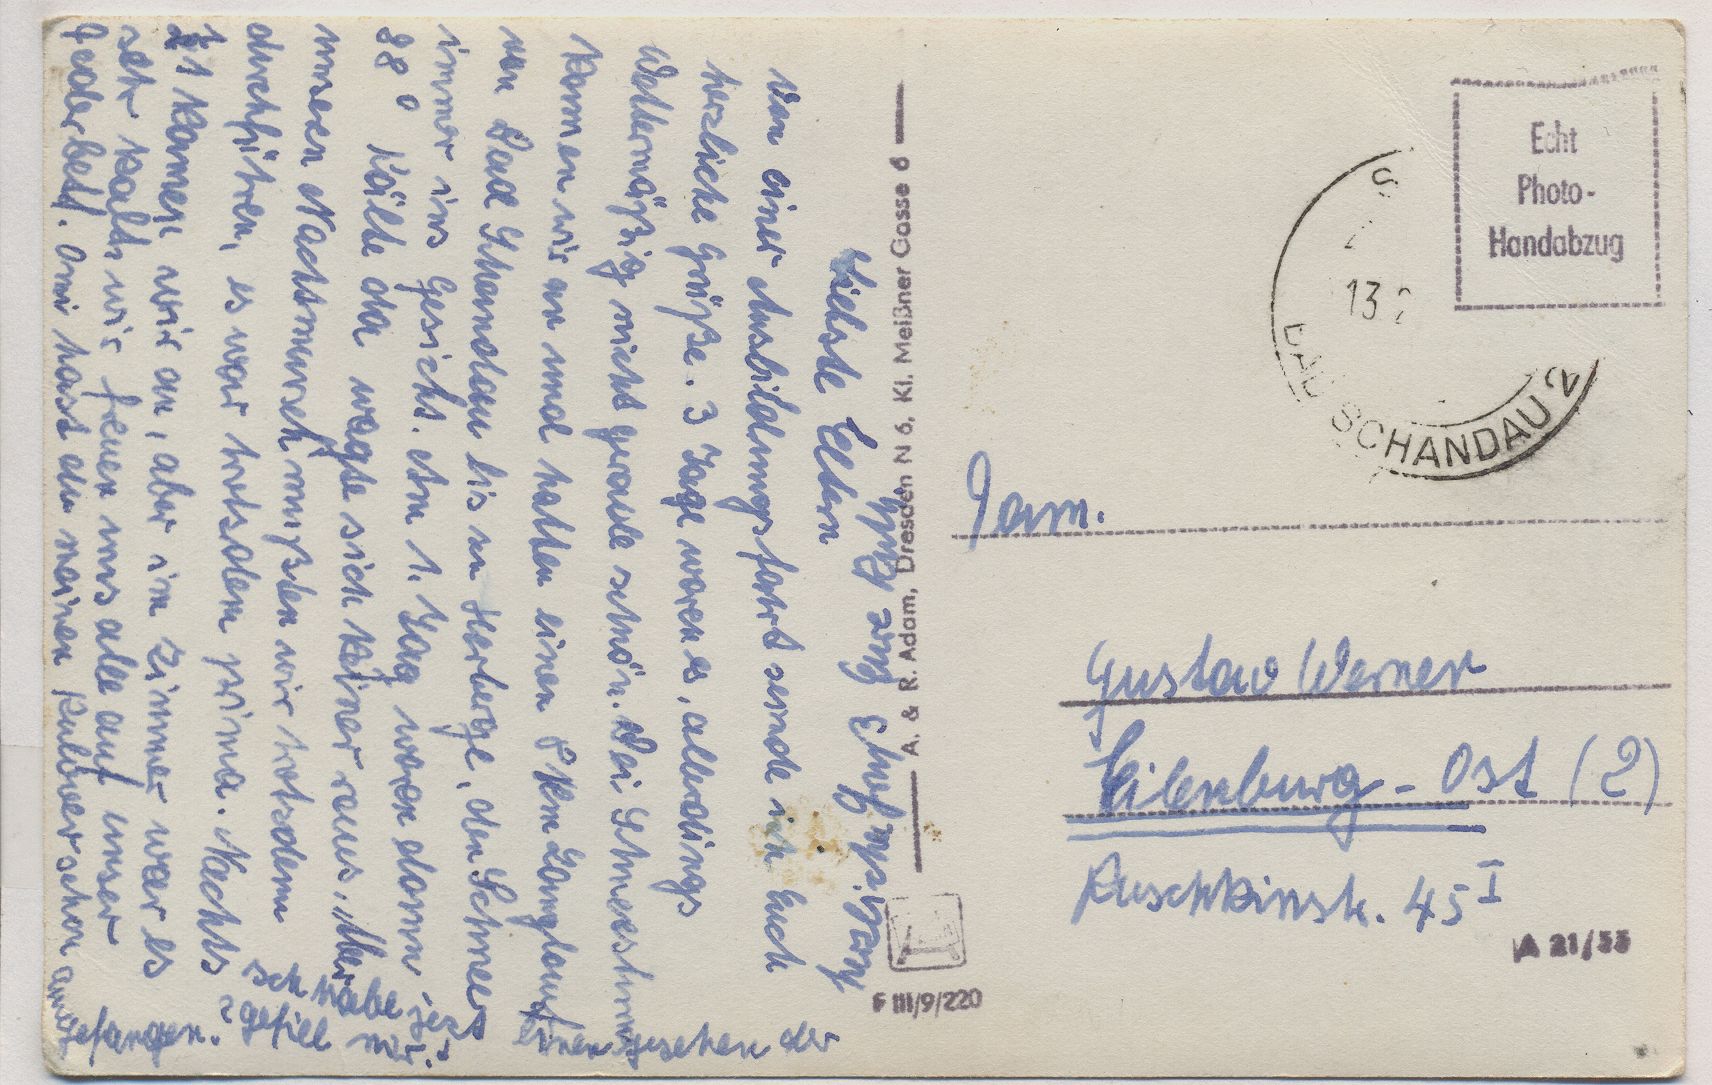 Liebste Eltern
von einer Ausbildungsfahrt sende ich Euch
herzliche Grüße. 3 Tage waren es, allerdings
Wettermäßig nicht gerade schön. Bei Schneesturm
kamen wir an und hatten einen 8 km Langlauf
von Bad Schandau bis zu Herberge, den Schnee
immer ins Gesicht. Am 1. Tag waren dann
28° Kälte da wagte sich keiner raus. Aber
unseren Nachtmarsch mußten wir trotzdem
durchführen, es war trotzdem prima. Nachts
21 kamen wir an, aber im Zimmer war es
sehr kalt. wir freuen uns alle auf unser
Federbett. Omi hast du meinen Pullover schon
angefangen.
Ich habe jezt
gefill mir
einen gesehen der
A. & R. Adam, Dresden N 6, Kl. Meißner Gasse 6
F III/9/220
Echt
Photo-
Handabzug
13 2
BAD SCHANDAU 2
Fam.
Gustav Werner
Eilenburg - Ost (2)
Puschkinstr. 45 I
A 21/53